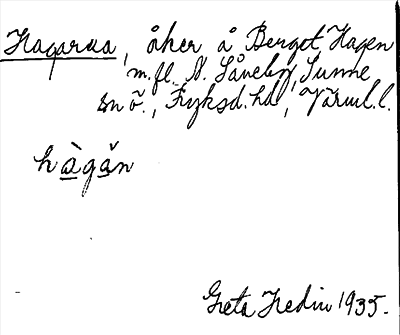 Hagarna, åker å Berget, Hagen
m.fl. N. Låneby, Sunne
sn ö., Fryksd. hd, Värml. l.
hàgǎn
Greta Hedin 1935.